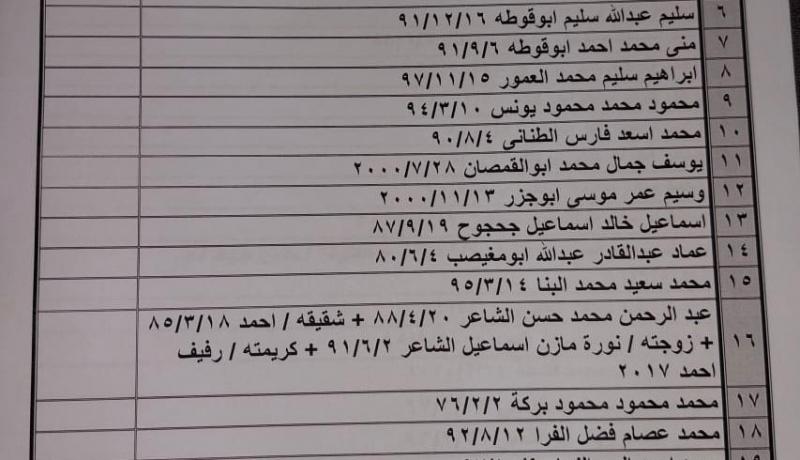 ٦ سليم عبدالله سليم ابوقوطه ٩١/١٢/١٦
٧ منى محمد احمد ابوقوطه ٩١/٩/٦
٨ ابراهيم سليم محمد العمور ٩٧/١١/١٥
٩ محمود محمد محمود يونس ٩٤/٣/١٠
١٠ محمد اسعد فارس الطنانى ٩٠/٨/٤
١١ يوسف جمال محمد ابوالقمصان ٢٠٠٠/٧/٢٨
١٢ وسيم عمر موسى ابوجزر ٢٠٠٠/١١/١٣
١٣ اسماعيل خالد اسماعيل جحجوح ٨٧/٩/١٩
١٤ عماد عبدالقادر عبدالله ابومغيصب ٨٠/٦/٤
١٥ محمد سعيد محمد البنا ٩٥/٣/١٤
١٦ عبد الرحمن محمد حسن الشاعر ٨٨/٤/٢٠ + شقيقه / احمد ٨٥/٣/١٨
+ زوجته / نورة مازن اسماعيل الشاعر ٩١/٦/٢ + كريمته / رفيف
احمد ٢٠١٧
١٧ محمد محمود محمود بركة ٧٦/٢/٢
١٨ محمد عصام فضل الفرا ٩٢/٨/١٢